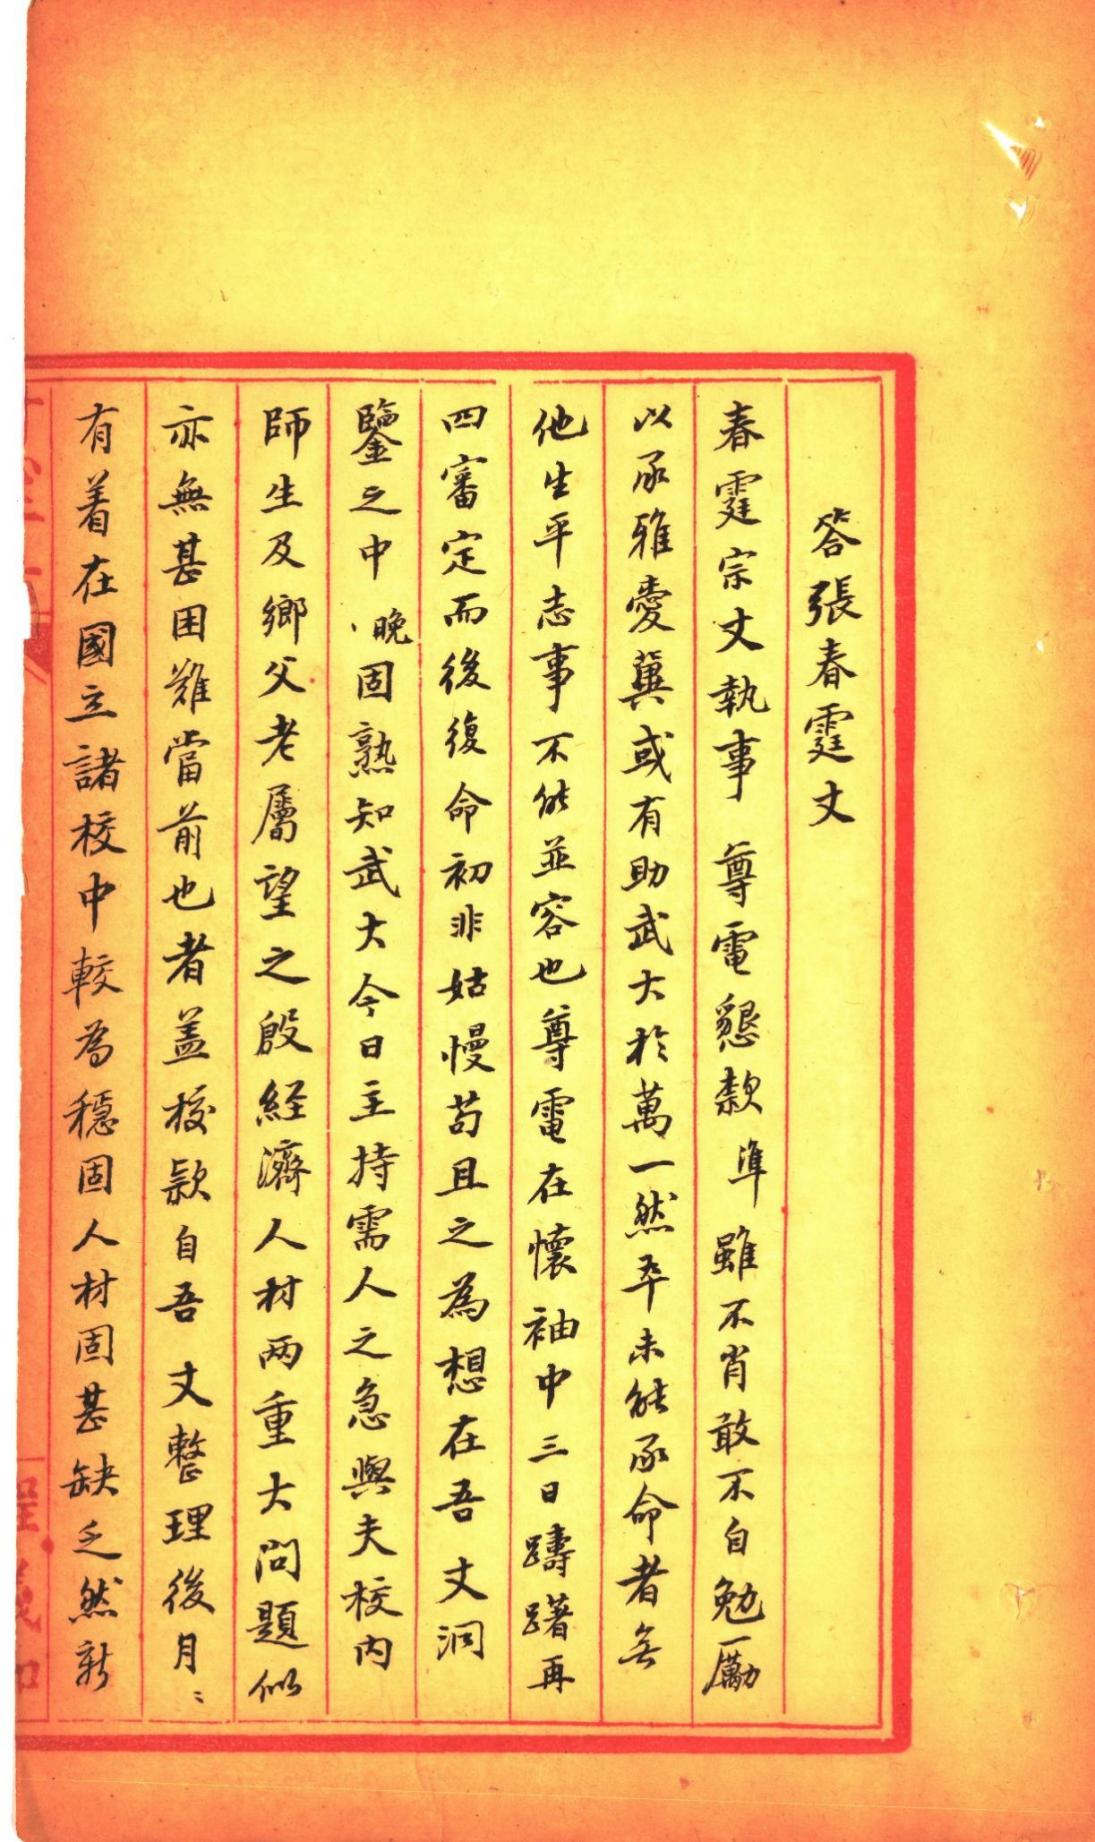 答張春霆丈
春霆宗丈執事 尊電懇欵 準 雖不肖敢不自勉勵
以承雅愛冀或有助武大於萬一然卒未能承命者無
他生平志事不能並容也尊電在懷袖中三日躊躇再
四審定而後復命初非姑慢苟且之為想在吾丈洞
鑒之中 晚固熟知武大今日主持需人之急與夫校内
師生及鄉父老屬望之殷經濟人材兩重大問題似
亦無甚困難當前也者蓋校款自吾丈整理後月〻
有着在國立諸校中較為穩固人材固甚缺乏然新